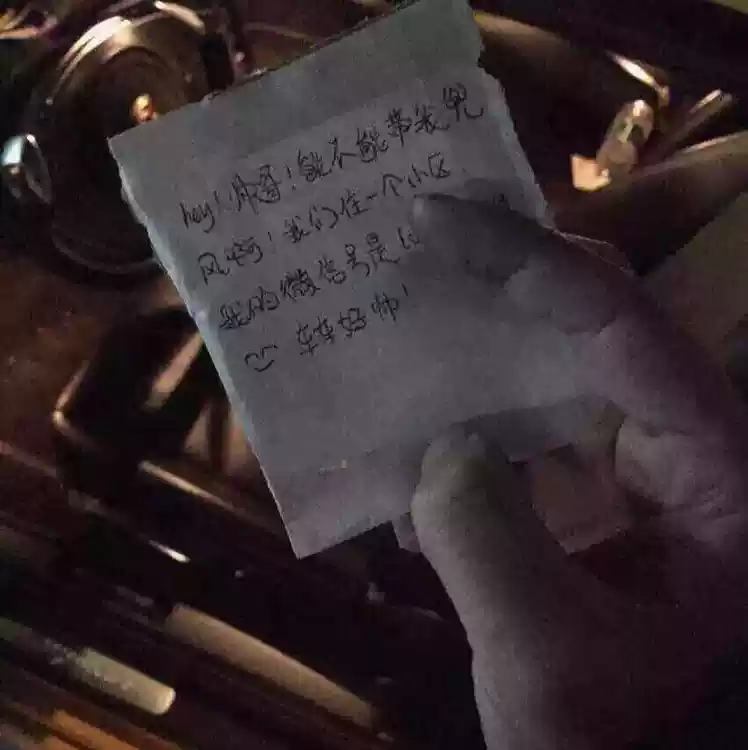 hey！帅哥！能不能带我兜
风啊！我们住一个小区
我的微信号是
车车好帅！